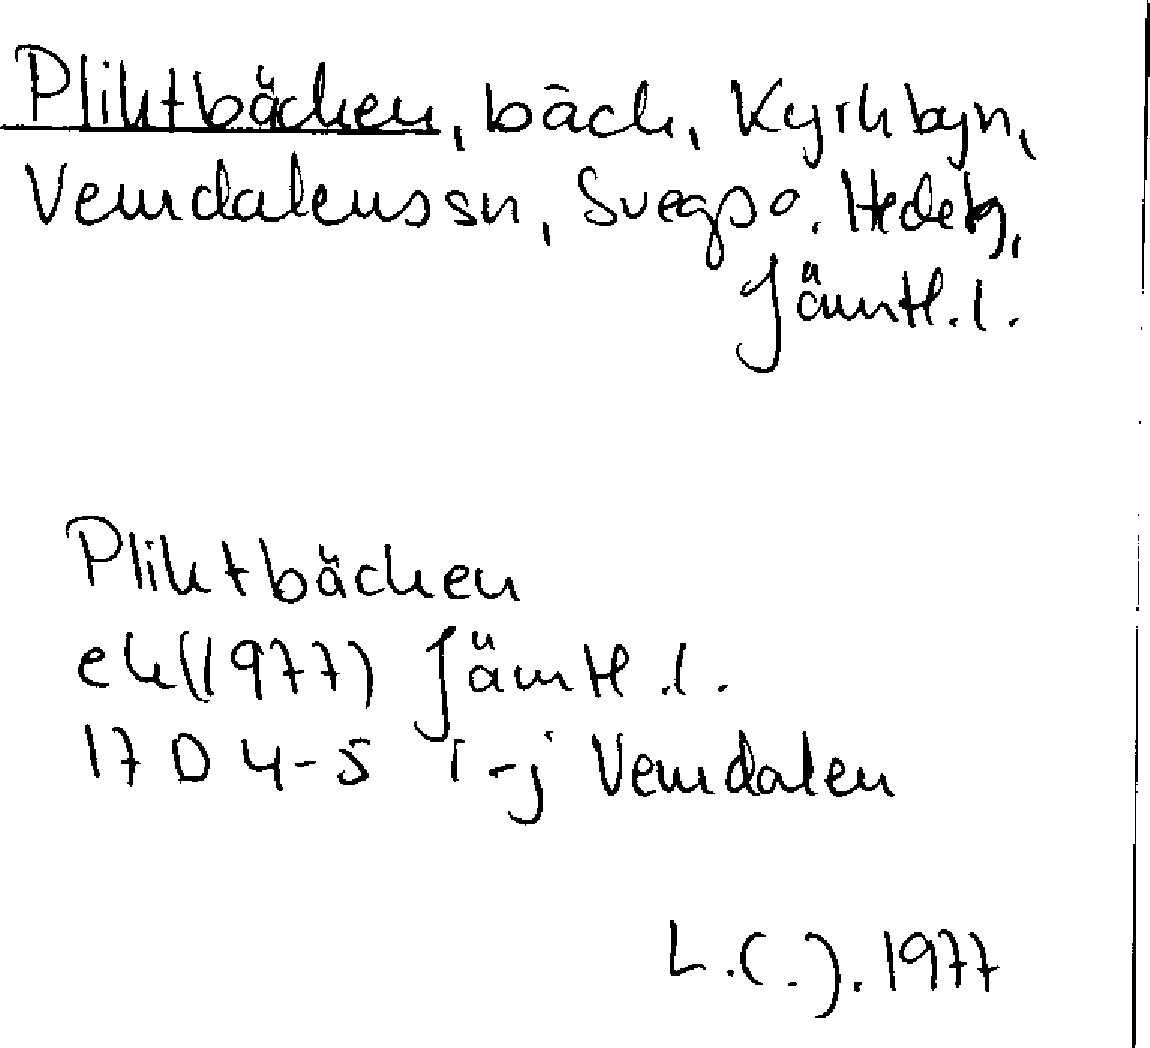 Pliktbäcken, bäck, Kyrkbyn,
Vemdalens sn, Svegs o. Hede tg,
Jämtl. l.
Pliktbäcken
ek (1977) Jämtl. l.
17 D 4-5 i-j Vemdalen
L.C.J. 1977